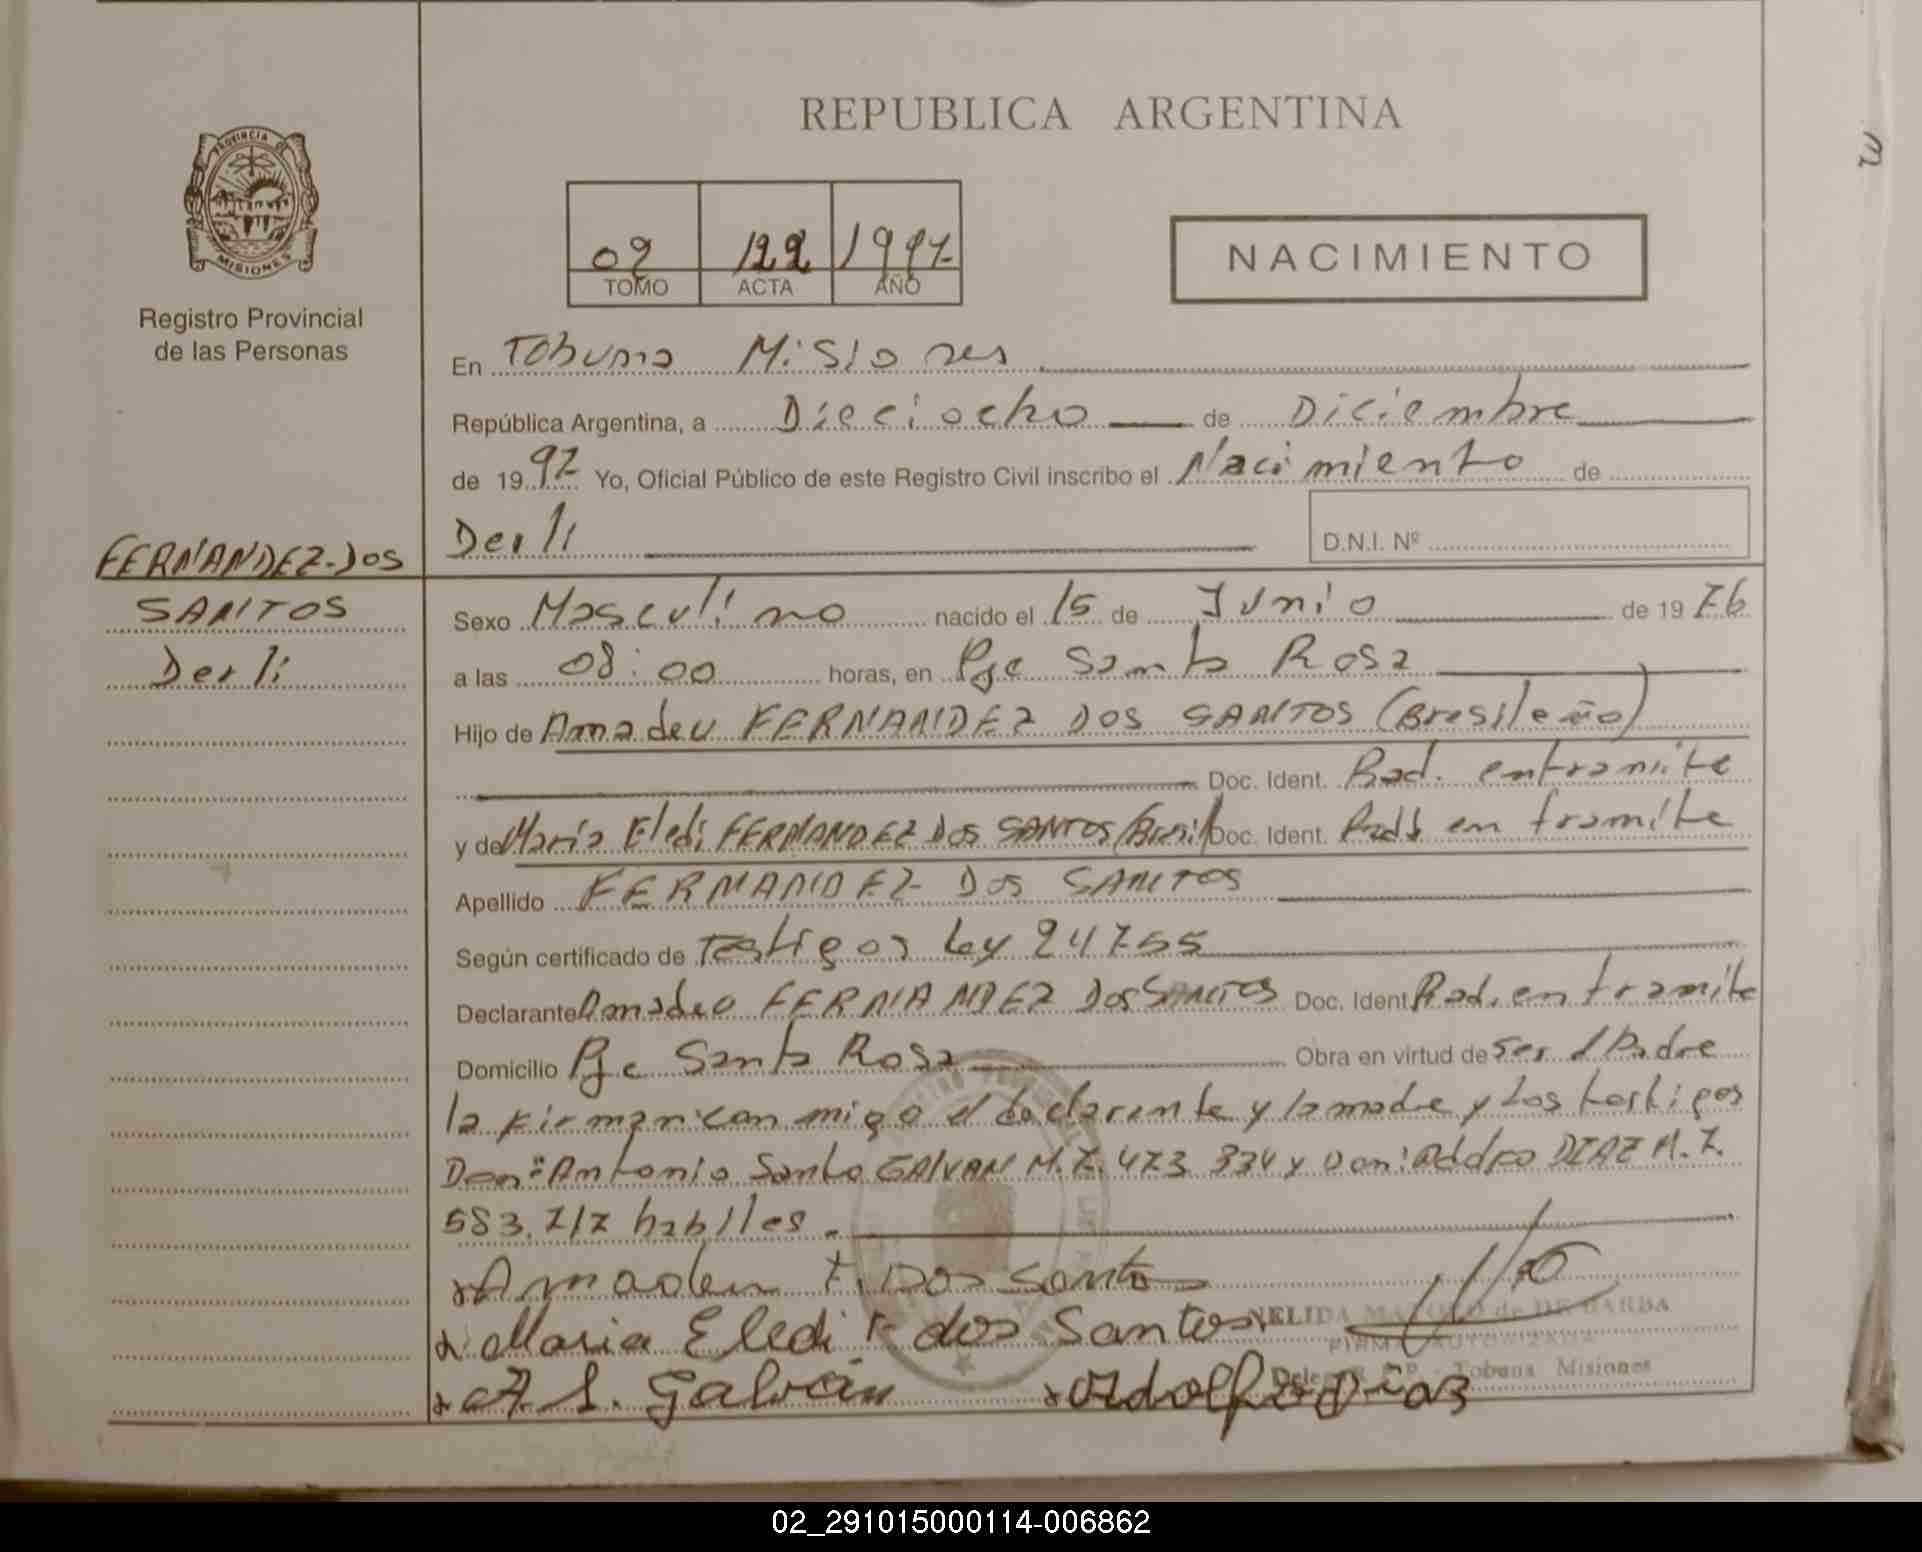 REPUBLICA ARGENTINA
PROVINCIA DE
MISIONES
Registro Provincial
de las Personas
02 122 1997
TOMO ACTA AÑO
NACIMIENTO
En Tobuna Misiones
República Argentina, a Dieciocho de Diciembre
de 1997 Yo, Oficial Público de este Registro Civil inscribo el Nacimiento de
Derli D.N.I. Nº
FERNANDEZ-DOS
SANTOS
Derli
Sexo Masculino nacido el 15 de Junio de 1976
a las 08:00 horas, en Pje Santa Rosa
Hijo de Amadeu FERNANDEZ DOS SANTOS (Bresileño)
Doc. Ident. Rad. entramite
y de Maria Eledi FERNANDEZ DOS SANTOS (Brasil) Doc. Ident. Radd en tramite
Apellido FERNANDEZ- DOS SANTOS
Según certificado de Testigos Ley 24755
Declarante Amadeo FERNANDEZ DOS SANTOS Doc. Ident Rad. en tramite
Domicilio Pje Santa Rosa Obra en virtud de Ser el Padre
la firman con migo el declarante y la madre y Los testigos
Don: Antonio Santo GALVAN M.7. 473 334 y Don: Addfo DIAZ M.7.
583.717 habiles.
Amadeu F. Dos Santos
Maria Eledi F. dos Santos
NELIDA DE BARBA
FIRMA AUTORIZADA
Tobuna Misiones
A S. Galván Adolfo Diaz
02_291015000114-006862